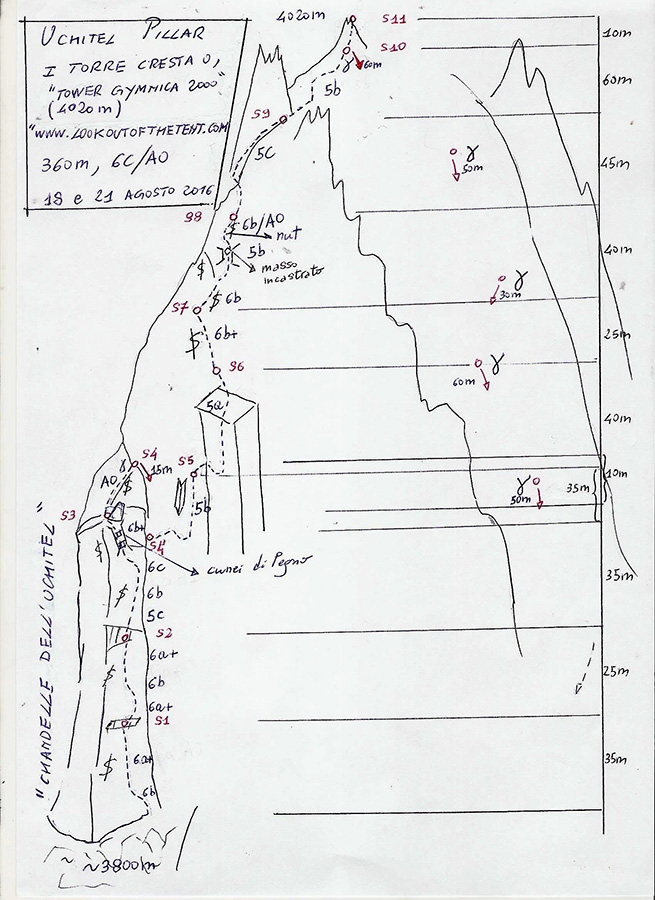 UCHITEL PILLAR
I TORRE CRESTA O,
"TOWER GYMNICA 2000"
(4020m)
"WWW.LOOKOUTOFTHETENT.COM
360m, 6C/A0
18 e 21 AGOSTO 2016
4020m
S11
10m
S10
60m
60m
5b
S9
5c
50m
45m
S8
6b/A0
nut
5b
masso
incastrato
40m
30m
S7
6b
6b+
25m
S6
60m
5a
40m
S4
15m
S5
A0
10m
35m
50m
5b
S3
6b+
S4'
cunei di legno
6c
35m
6b
5c
S2
6a+
25m
6b
6a+
S1
6a+
35m
6b
"CHANDELLE DELL'UCHITEL"
~3800m